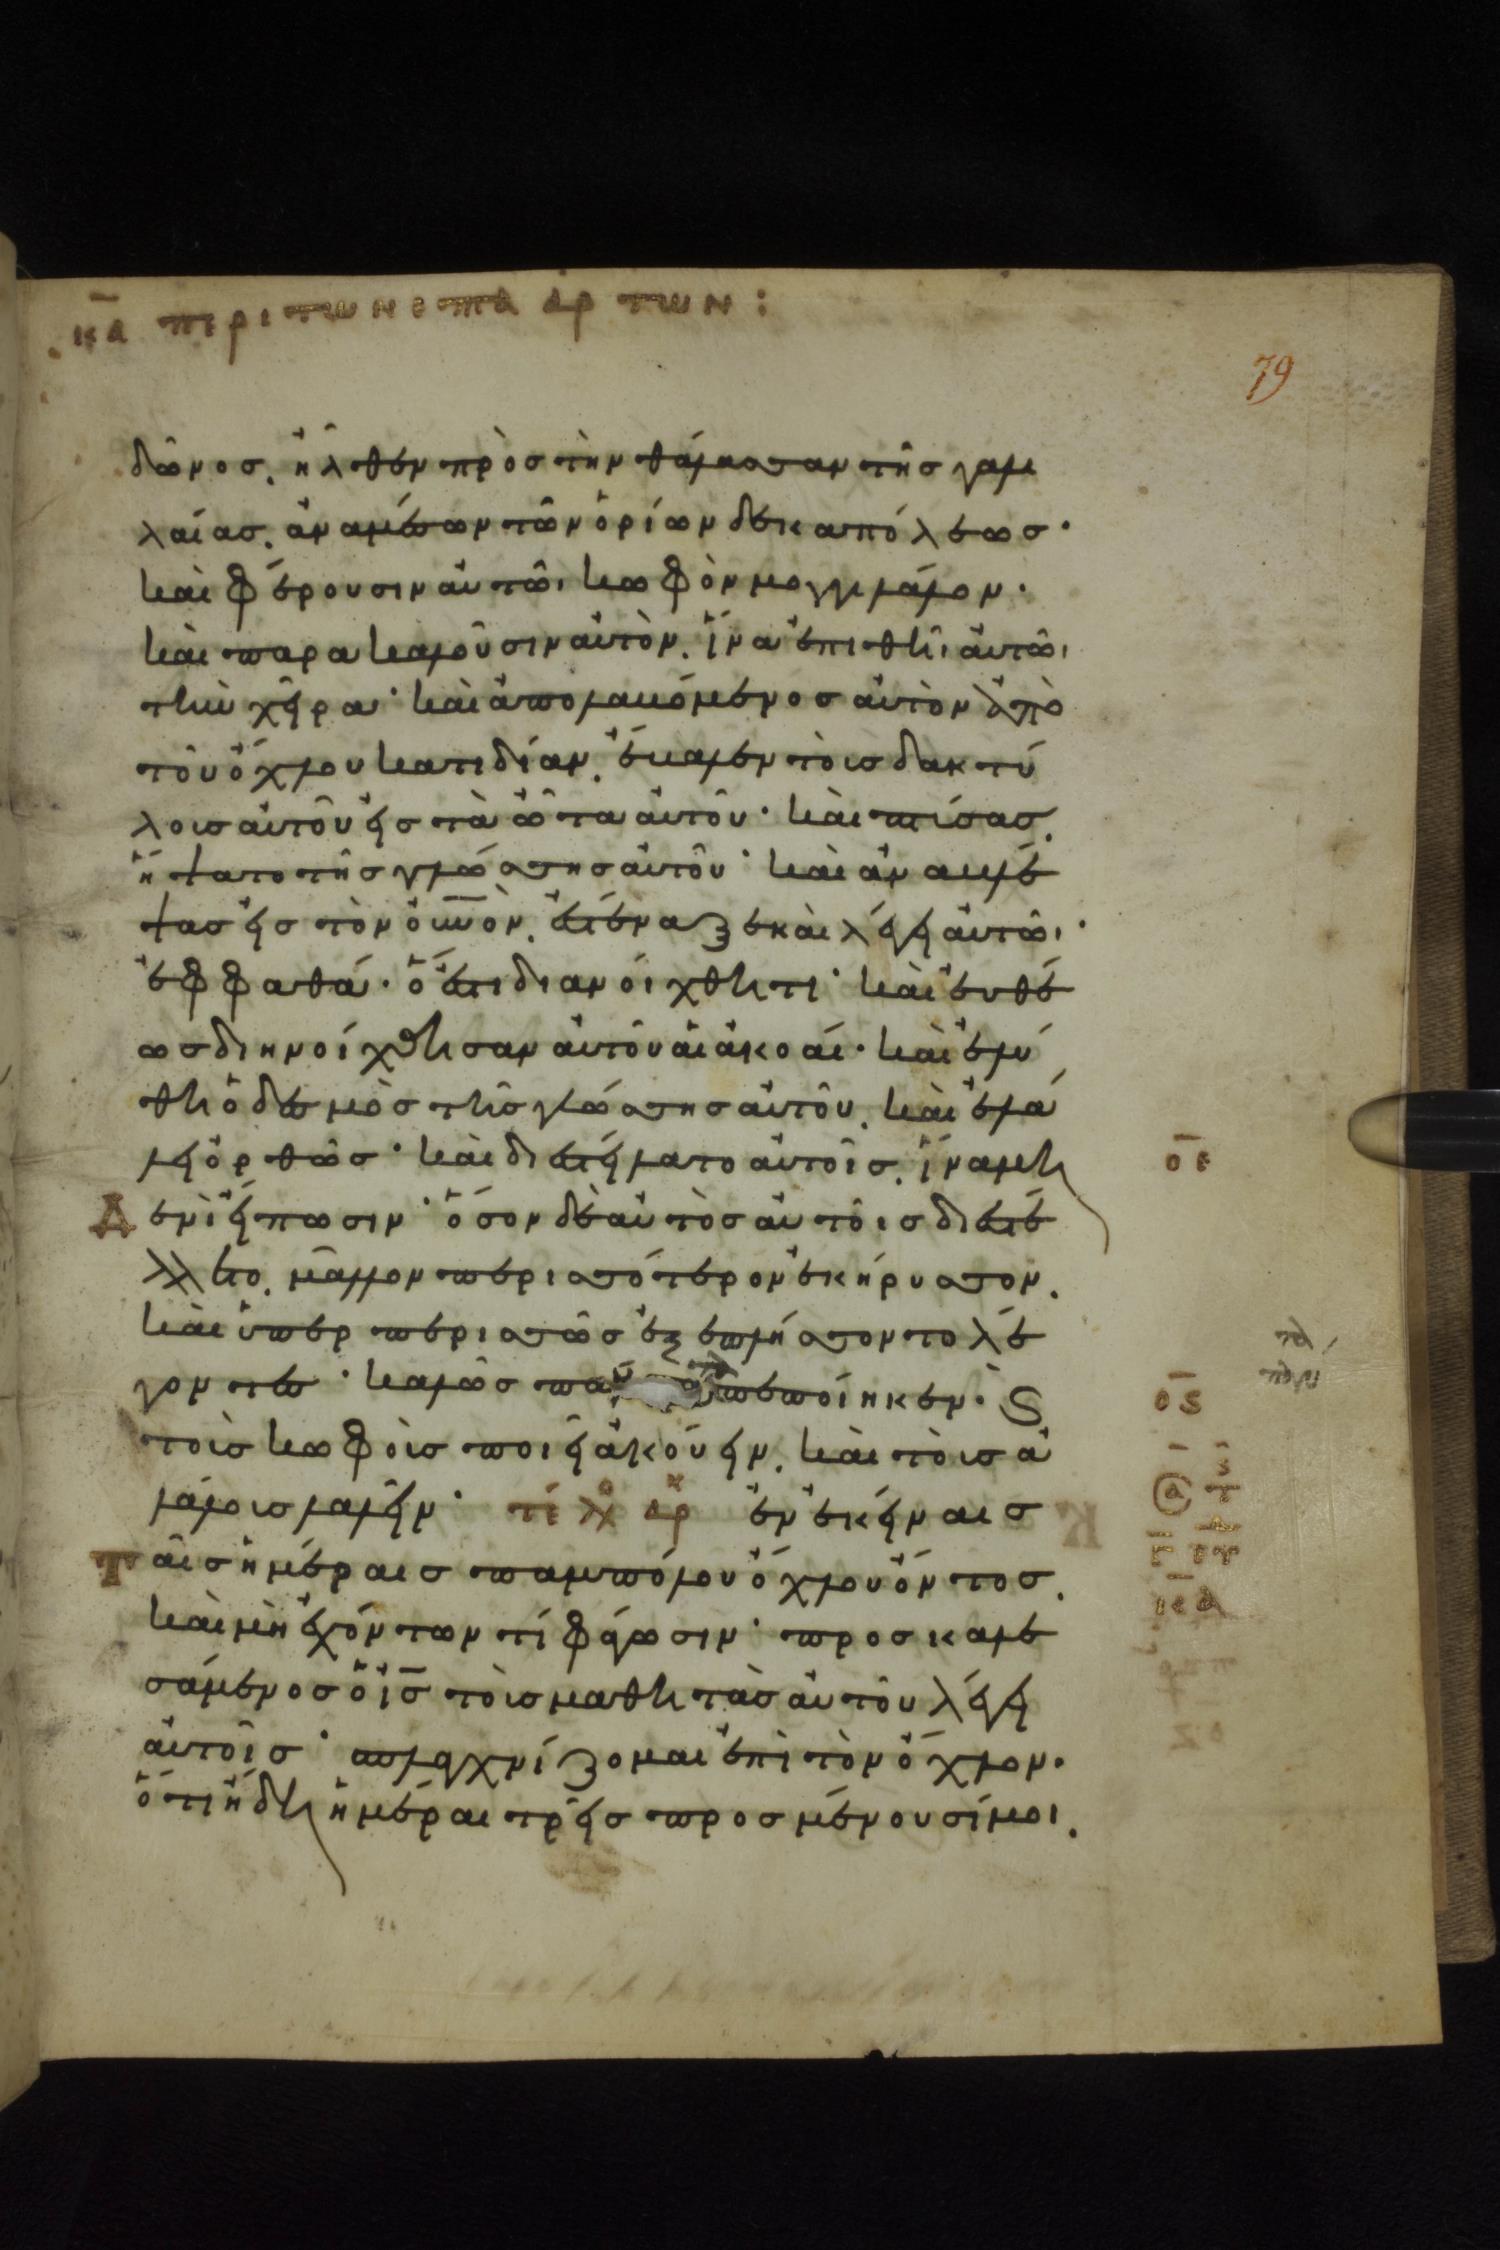 κα περι των επτα αρτων:
79
δῶνος. ἦλθεν πρὸς τὴν θάλασσαν τῆς γαλι
λαίας. ἀναμέσων τῶν ὁρίων δεκαπόλεως·
καὶ φέρουσιν αὐτῶι κωφὸν μογγιλάλον·
καὶ παρακαλοῦσιν αὐτὸν. ἵνα ἐπιθῆι αὐτῶι
τὴν χεῖρα· καὶ ἀπολαβόμενος αὐτὸν ἀπὸ
τοῦ ὄχλου κατιδίαν. ἔβαλεν τοὶς δακτύ
λοις αὐτοῦ εἰς τὰ ὦτα αὐτοῦ· καὶ πτίσας.
ἥψατο τῆς γλώσσης αὐτοῦ· καὶ ἀναβλέ
ψας εἰς τὸν οὐνὸν. ἐστέναξε καὶ λέγει αὐτῶι·
ἐφφαθά· ὅ ἐστι διανοίχθητι· καὶ εὐθέ
ως διηνοίχθησαν αὐτοῦ αἱ ἀκοαί· καὶ ἐλύ
θη ὁ δεσμὸς τῆς γλώσσης αὐτοῦ. καὶ ἐλά
λει ὀρθῶς· καὶ διεστείλατο αὐτοῖς. ἵνα μη
δενὶ εἴπωσιν· ὅσον δὲ αὐτὸς αὐτοῖς διεστέ
λλετο. μᾶλλον περισσότερον ἐκήρυσσον.
καὶ ὑπερπερισσῶς ἐξεπλήσσοντο λέ
γοντες· καλῶς πάντα πεποίηκεν· καὶ
τοὶς κωφοὶς ποιεῖ ἀκούειν. καὶ τοὶς ἀ
λάλοις λαλεῖν· τέλ αρχ ἐν ἐκείναις
ταῖς ἡμέραις παμπόλου ὄχλου ὄντος.
καὶ μὴ ἐχόντων τί φάγωσιν· προσκαλε
σάμενος ὁ ις τοὶς μαθητὰς αὐτοῦ λέγει
αὐτοῖς· σπλαγχνίζομαι ἐπὶ τὸν ὄχλον·
ὅτι ἤδη ἡμέραι τρεῖς προσμένουσί μοι.
οε
ος
κα